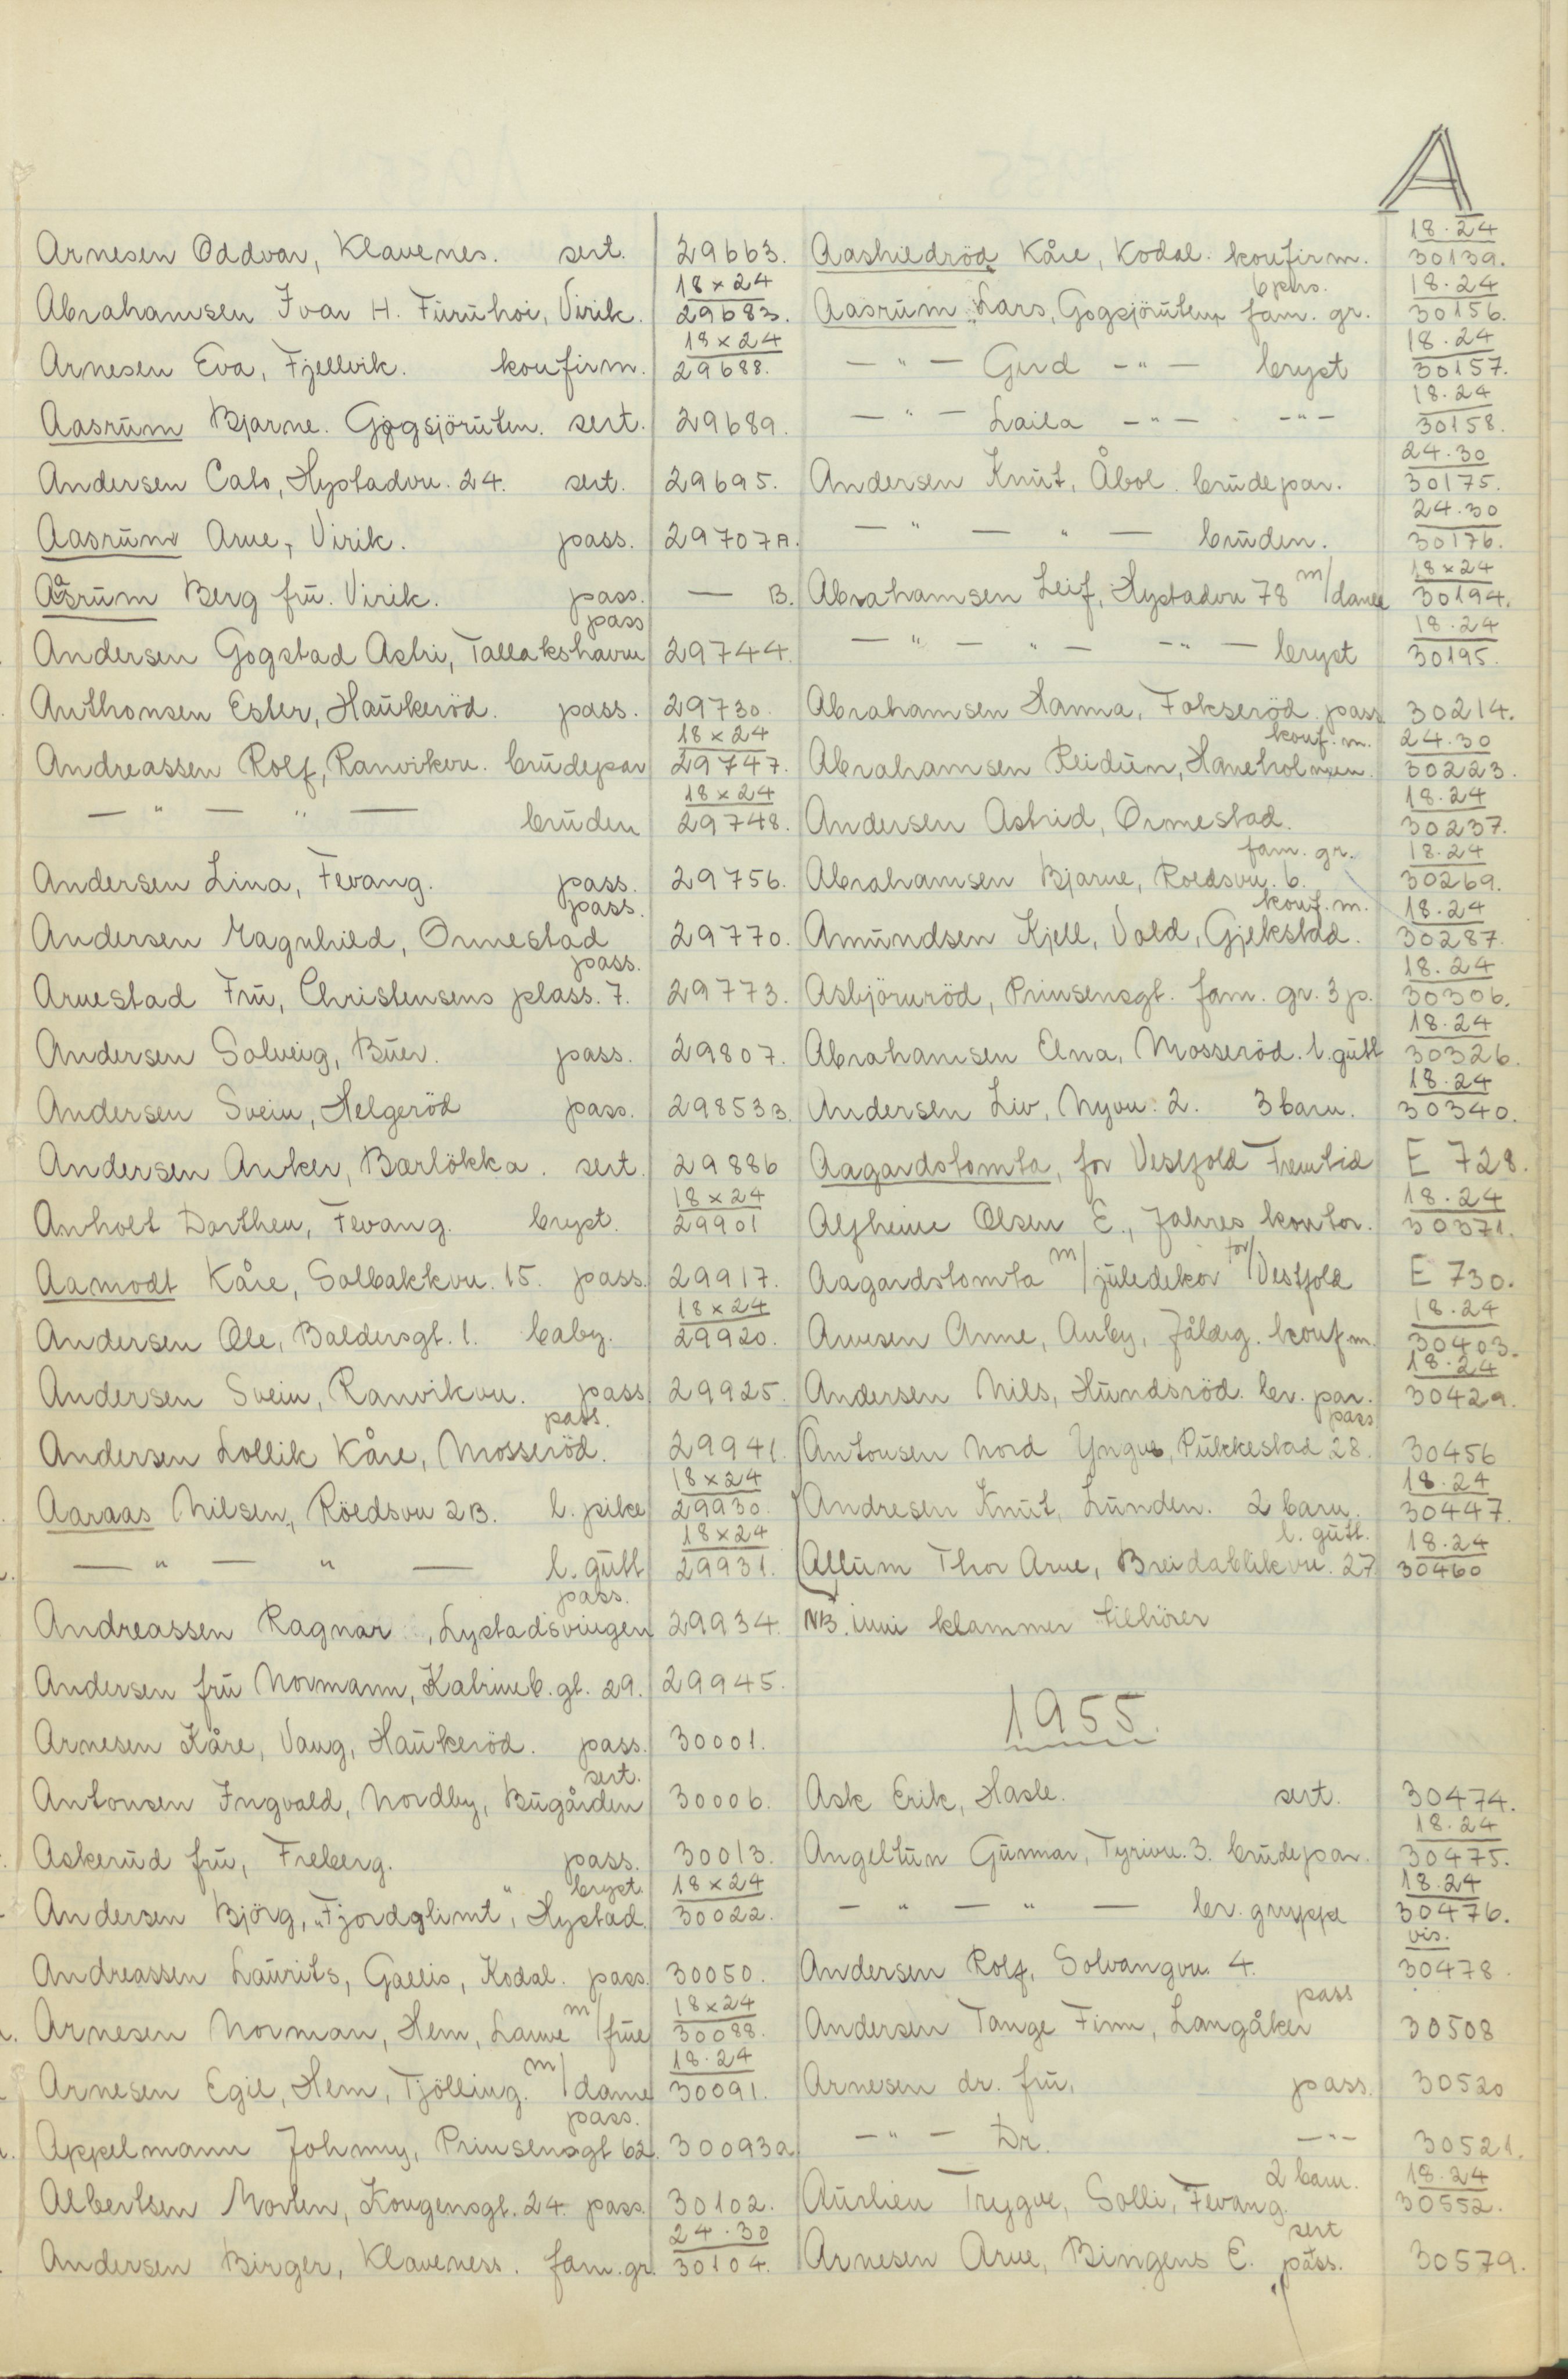 A
Arnesen Oddvar, Klavenes. sert. 29663.
Abrahamsen Ivar H. Furuhoi, Virik. 18x24 29683.
Arnesen Eva, Fjellvik. konfirm. 18x24 29688.
Aasrum Bjarne. Gogsjöruten. sert. 29689.
Andersen Cato, Hystadvn. 24. sert. 29695.
Aasrum Arne, Virik. pass. 29707A.
Aasrum Berg fru. Virik. pass. — B.
Andersen Gogstad Astri, Tallakshavn pass 29744.
Anthonsen Ester, Haukeröd. pass. 29730.
Andreassen Rolf, Ranvikvn. brudepar 18x24 29747.
— " — " — bruden 18x24 29748.
Andersen Lina, Fevang. pass. 29756.
Andersen Ragnhild, Ormestad pass. 29770.
Arnestad Fru, Christensens plass. 7. pass. 29773.
Andersen Solveig, Buer. pass. 29807.
Andersen Svein, Helgeröd pass. 29853B.
Andersen Anker, Barlökka. sert. 29886
Anholt Dorthea, Fevang. bryst. 18x24 29901
Aamodt Kåre, Solbakkvn. 15. pass. 29917.
Andersen Ole, Baldersgt. 1. baby. 18x24 29920.
Andersen Svein, Ranvikvn. pass 29925.
Andersen Lollik Kåre, Mosseröd. pass. 29941.
Aaraas Nilsen, Röedsvn 2B. l. pike 18x24 29930.
— " — " — l. gutt 18x24 29931.
Andreassen Ragnar, Lystadsvingen pass. 29934.
Andersen fru Normann, Katrineb. gt. 29. 29945.
Arnesen Kåre, Vang, Haukeröd. pass. 30001.
Antonsen Ingvald, Nordby, Bugården sert. 30006.
Askerud fru, Freberg. pass. 30013.
Andersen Björg, "Fjordglimt", Hystad. bryst. 18x24 30022.
Andreassen Laurits, Gallis, Kodal. pass. 30050.
Arnesen Norman, Hem, Lauve m/frue 18x24 30088.
Arnesen Egil, Hem, Tjölling. m/dame 18.24 30091.
Appelmann Johnny, Prinsensgt 62. pass. 30093a
Albertsen Morten, Kongensgt. 24. pass. 30102.
Andersen Birger, Klaveness. fam. gr. 24.30 30104.
Aashildröd Kåre, Kodal. konfirm. 18.24 30139.
Aasrum Lars, Gogsjöruten fam. gr. 6 pers. 18.24 30156.
— " — Gerd — " — bryst 18.24 30157.
— " — Laila — " — — " — 18.24 30158.
Andersen Knut, Åbol. brudepar. 24.30 30175.
— " — " — bruden. 24.30 30176.
Abrahamsen Leif, Hystadvn 78 m/dame 18x24 30194.
— " — " — — " — bryst 18.24 30195.
Abrahamsen Hanna, Fokseröd. pass 30214.
Abrahamsen Reidun, Haneholmen. konf. m. 24.30 30223.
Andersen Astrid, Ormestad. 18.24 30237.
Abrahamsen Bjarne, Roedsvn. 6. fam. gr. 18.24 30269.
Amundsen Kjell, Vold, Gjekstad. konf. m. 18.24 30287.
Asbjörnröd, Prinsensgt. fam. gr. 3 p. 18.24 30306.
Abrahamsen Elna, Mosseröd. l. gutt 18.24 30326.
Andersen Liv, Nyvn. 2. 3 barn. 18.24 30340.
Aagardstomta, for Vestfold Fremtid E 728.
Alfheim Olsen E., Jahres kontor. 18.24 30371.
Aagardstomta m/juledekor for/Vestfold E 730.
Arnesen Anne, Auby, Jåberg. konf m. 18.24 30403.
Andersen Nils, Hundsröd. br. par. 18.24 30429.
Antonsen Nord Yngve, Pukkestad 28. pass 30456
Andresen Knut, Lunden. 2 barn. 18.24 30447.
Allum Thor Arne, Breidablikvn. 27 l. gutt. 18.24 30460
NB. inni klammer tilhörer
1955.
Ask Erik, Hasle. sert. 30474.
Angeltun Gunnar, Tyrivn. 3. brudepar. 18.24 30475.
— " — " — br. gruppe 18.24 30476.
Andersen Rolf, Solvangvn. 4. vis. 30478.
Andersen Tange Finn, Langåker pass 30508
Arnesen dr. fru, pass. 30520
— " — Dr. — " — 30521.
Aurlien Trygve, Solli, Fevang. 2 barn. 18.24 30552.
Arnesen Arne, Bingens E. sert pass. 30579.